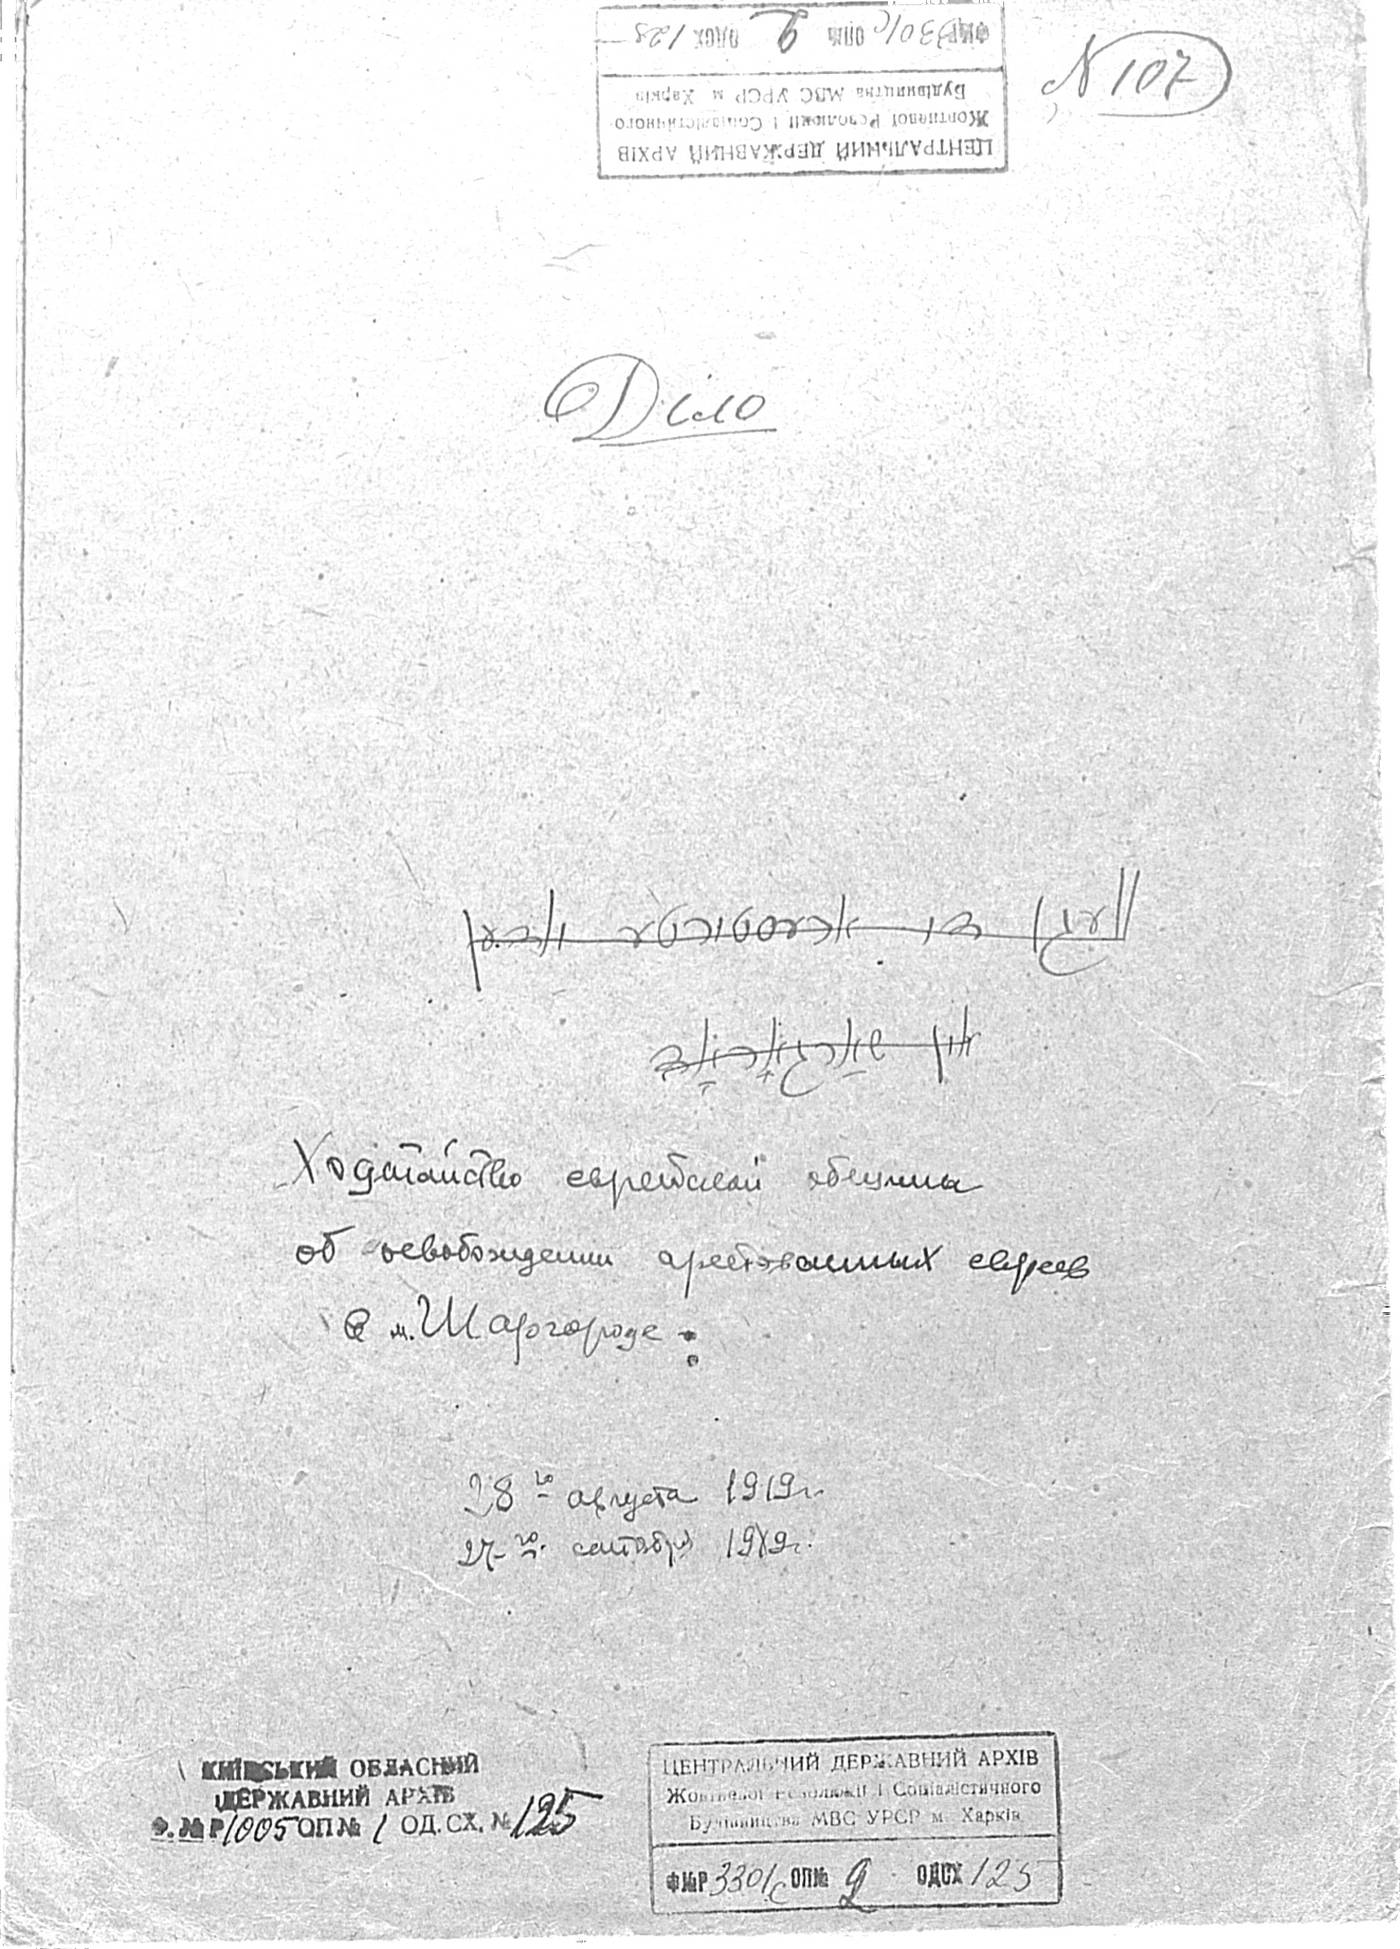 ФМР 3301с ОПМ 2 ОДСХ 125
ЦЕНТРАЛЬНИЙ ДЕРЖАВНИЙ АРХІВ
Жовтневої Революції і Соціалістичного
Будівництва МВС УРСР м Харків
N 107
Діло
Ходатайство еврейской общины
об освобождении арестованных евреев
в м. Шаргороде
28 го августа 1919 г.
27-го. сентября 1919 г.
КИЇВСЬКИЙ ОБЛАСНИЙ
ДЕРЖАВНИЙ АРХІВ
Ф. № Р 1005 ОП № 1 ОД. СХ. № 125
ЦЕНТРАЛЬНИЙ ДЕРЖАВНИЙ АРХІВ
Жовтневої Революції і Соціалістичного
Будівництва МВС УРСР м Харків
Ф№Р 3301с ОП№ 2 ОДСХ 125